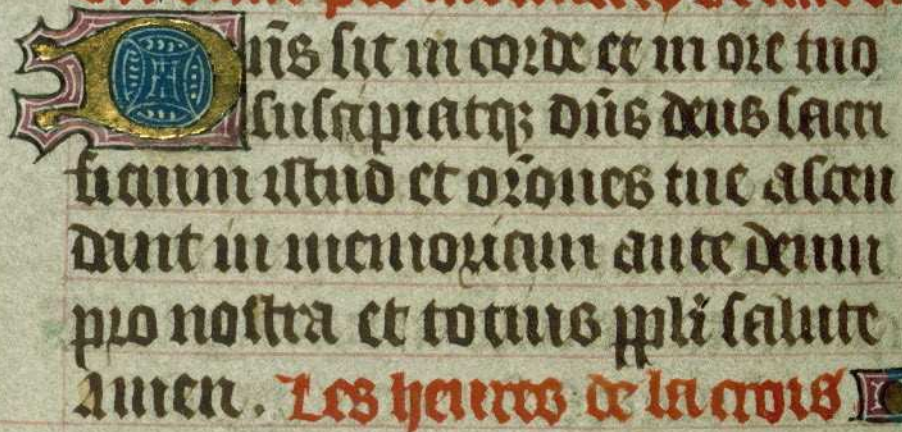 Dñs sit in corde et in ore tuo
suscipiatq; dñs deus sacri
ficium istud et orõnes tue ascen
dant in memoriam ante deum
pro nostra et totius ppl̃i salute
amen. Les heures de la crois